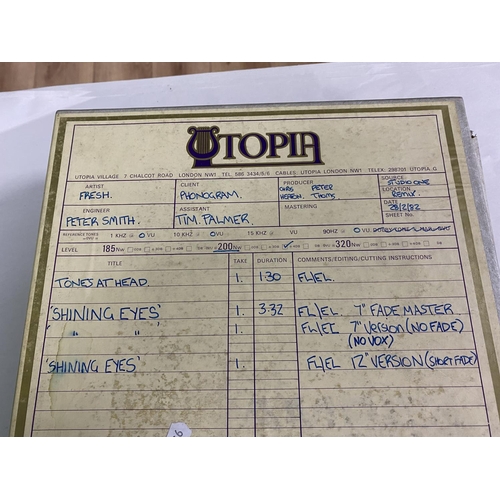 UTOPIA
UTOPIA VILLAGE 7 CHALCOT ROAD LONDON NW1 TEL. 586 3434/5/6 CABLES: UTOPIA LONDON NW1 TELEX: 298701 UTOPIA G
ARTIST CLIENT PRODUCER SOURCE
FRESH. PHONOGRAM. CHRIS PETER STUDIO ONE
ENGINEER ASSISTANT MASTERING LOCATION
PETER SMITH. TIM. PALMER
DATE
SHEET No.
REFERENCE TONES 1 KHZ @ 0 VU 10 KHZ @ 0 VU 15 KHZ @ VU 90HZ @ 0 VU
LEVEL 185Nw 200Nw 320Nw
TITLE TAKE DURATION COMMENTS/EDITING/CUTTING INSTRUCTIONS
TONES AT HEAD. 1. 1.30 FL/EL.
'SHINING EYES' 1. 3.32 FL/EL 7" FADE MASTER
" " 1. FL/EL 7" Version (NO FADE)
(NO VOX)
'SHINING EYES' 1. FL/EL 12" VERSION (SHORT FADE)